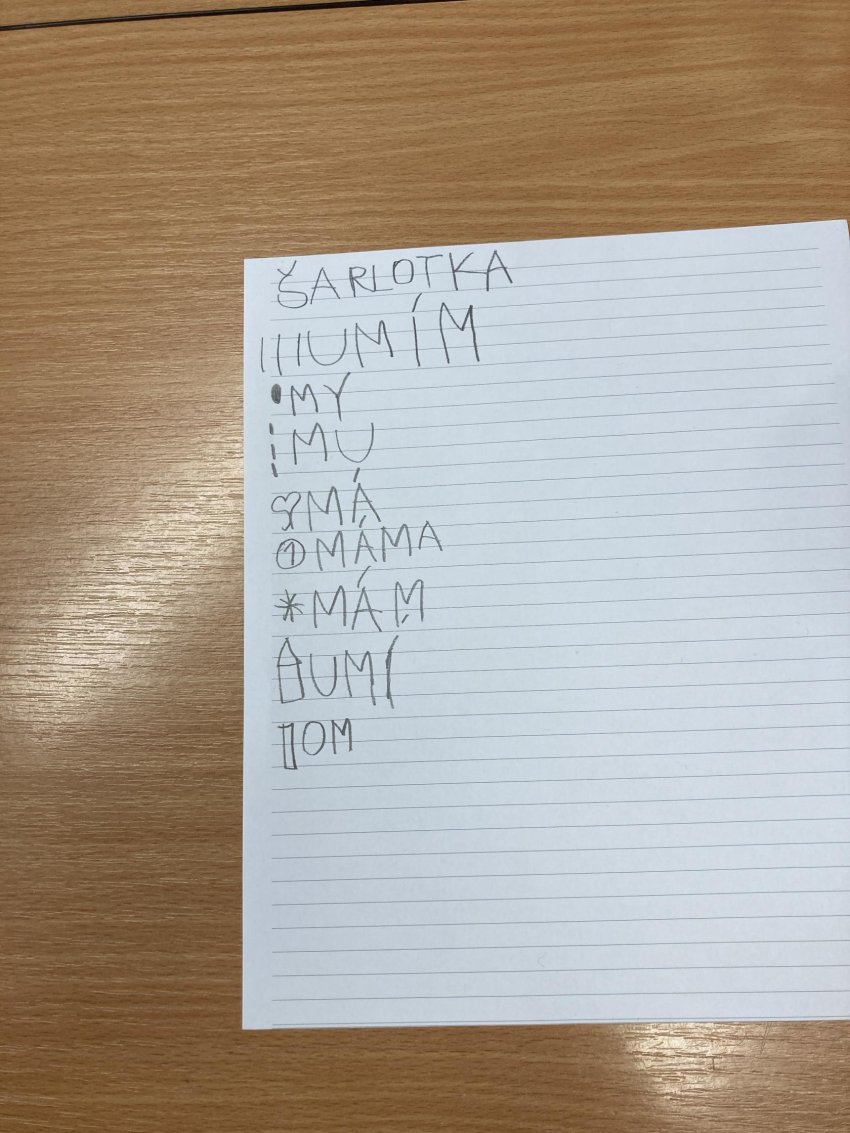 ŠARLOTKA
UMÍM
MÝ
MU
MÁ
① MÁMA
* MÁM
UMÍ
OM